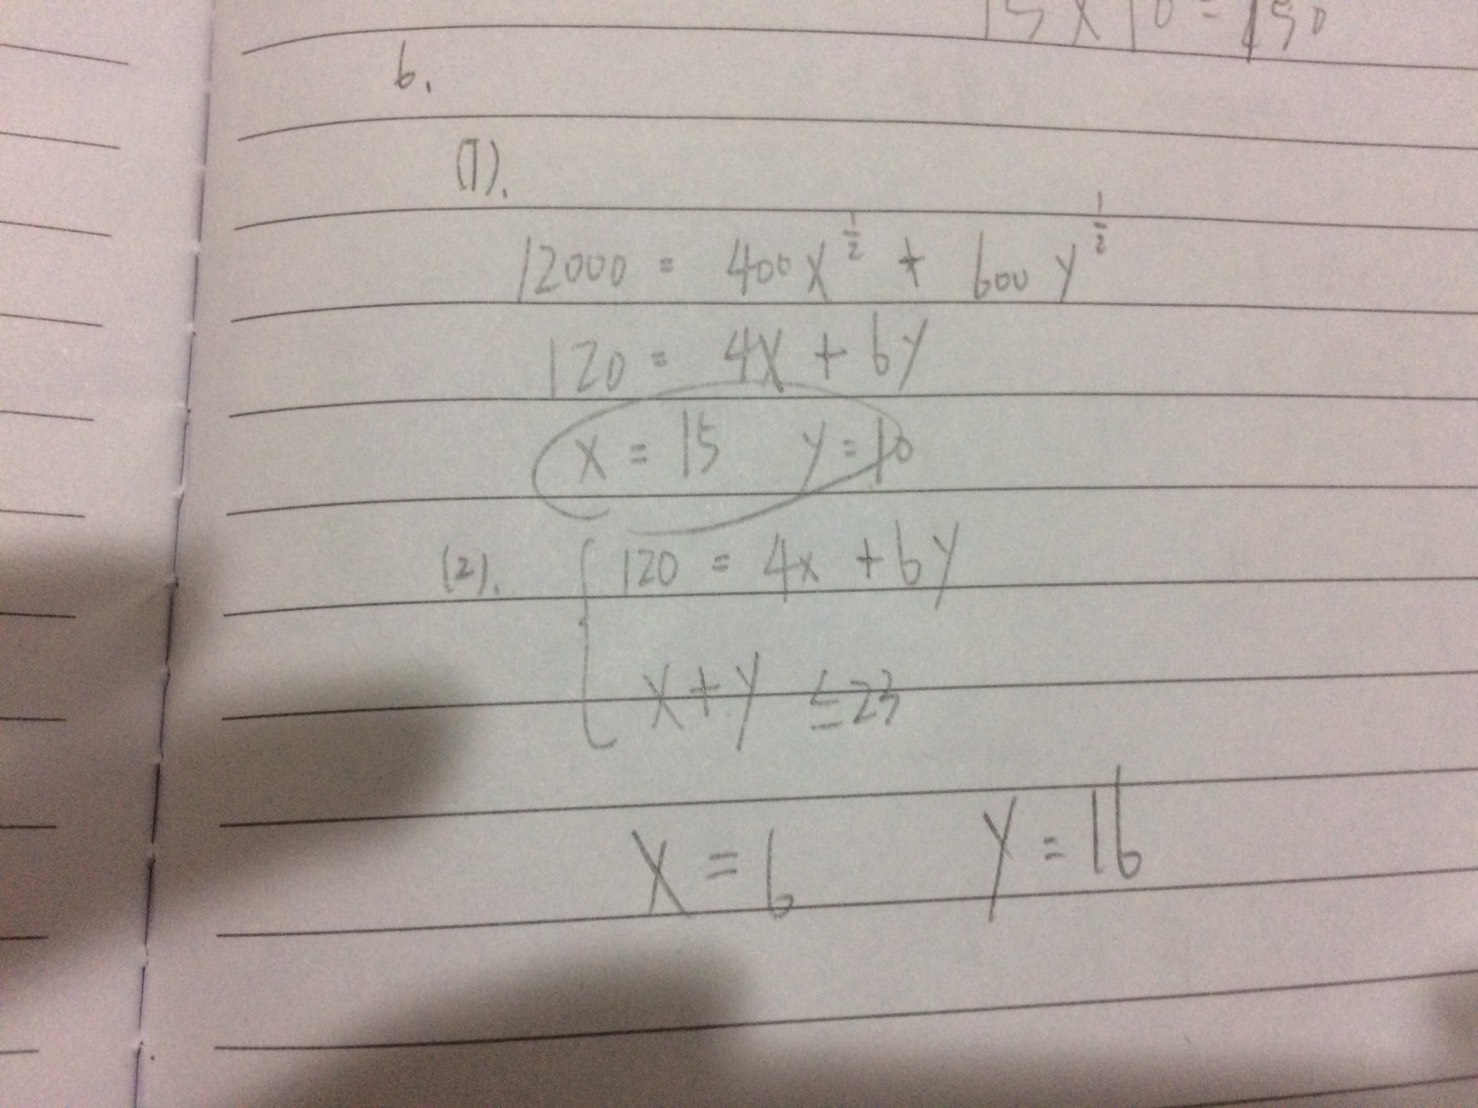 15 x 10 = 150
6.
(1).
12000 = 400x^{\frac{1}{2}} + 600y^{\frac{1}{2}}
120 = 4x + 6y
x = 15 y = 10
(2). { 120 = 4x + 6y
x + y ≤ 23
x = 6 y = 16